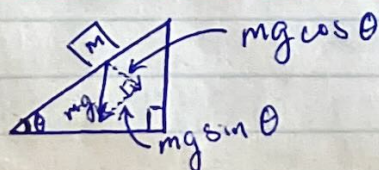 M
mg cos θ
mg
θ
mg sin θ